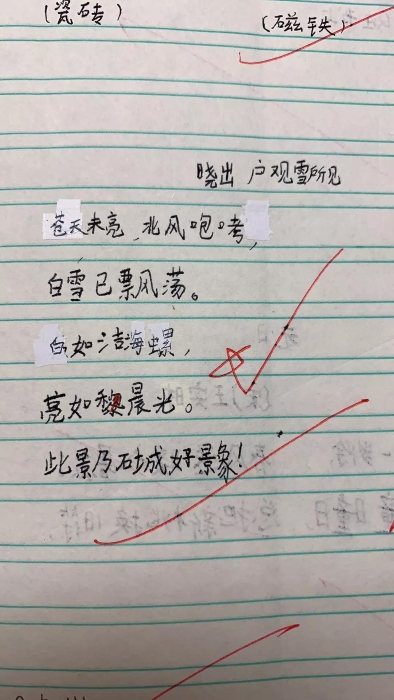 (瓷砖) (磁铁)
晓出 户观雪所见
苍天未亮,北风咆哮,
白雪已票风荡。
白如洁海螺,
亮如晨光。
此景乃石城好景象!